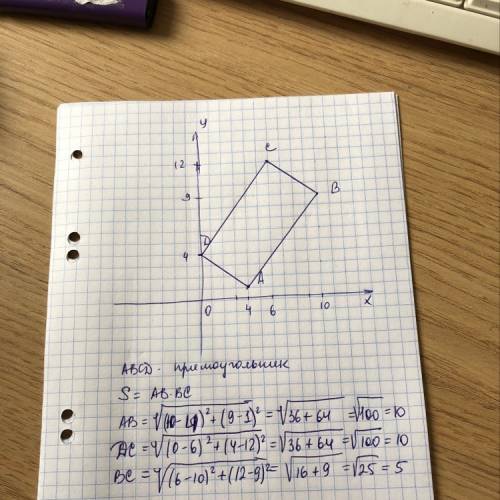 y
C
12
9
B
D
4
A
0 4 6 10 x
ABCD - прямоугольник
S = AB·BC
AB = √(10-4)² + (9-1)² = √36+64 = √100 = 10
DC = √(0-6)² + (4-12)² = √36+64 = √100 = 10
BC = √(6-10)² + (12-9)² = √16+9 = √25 = 5